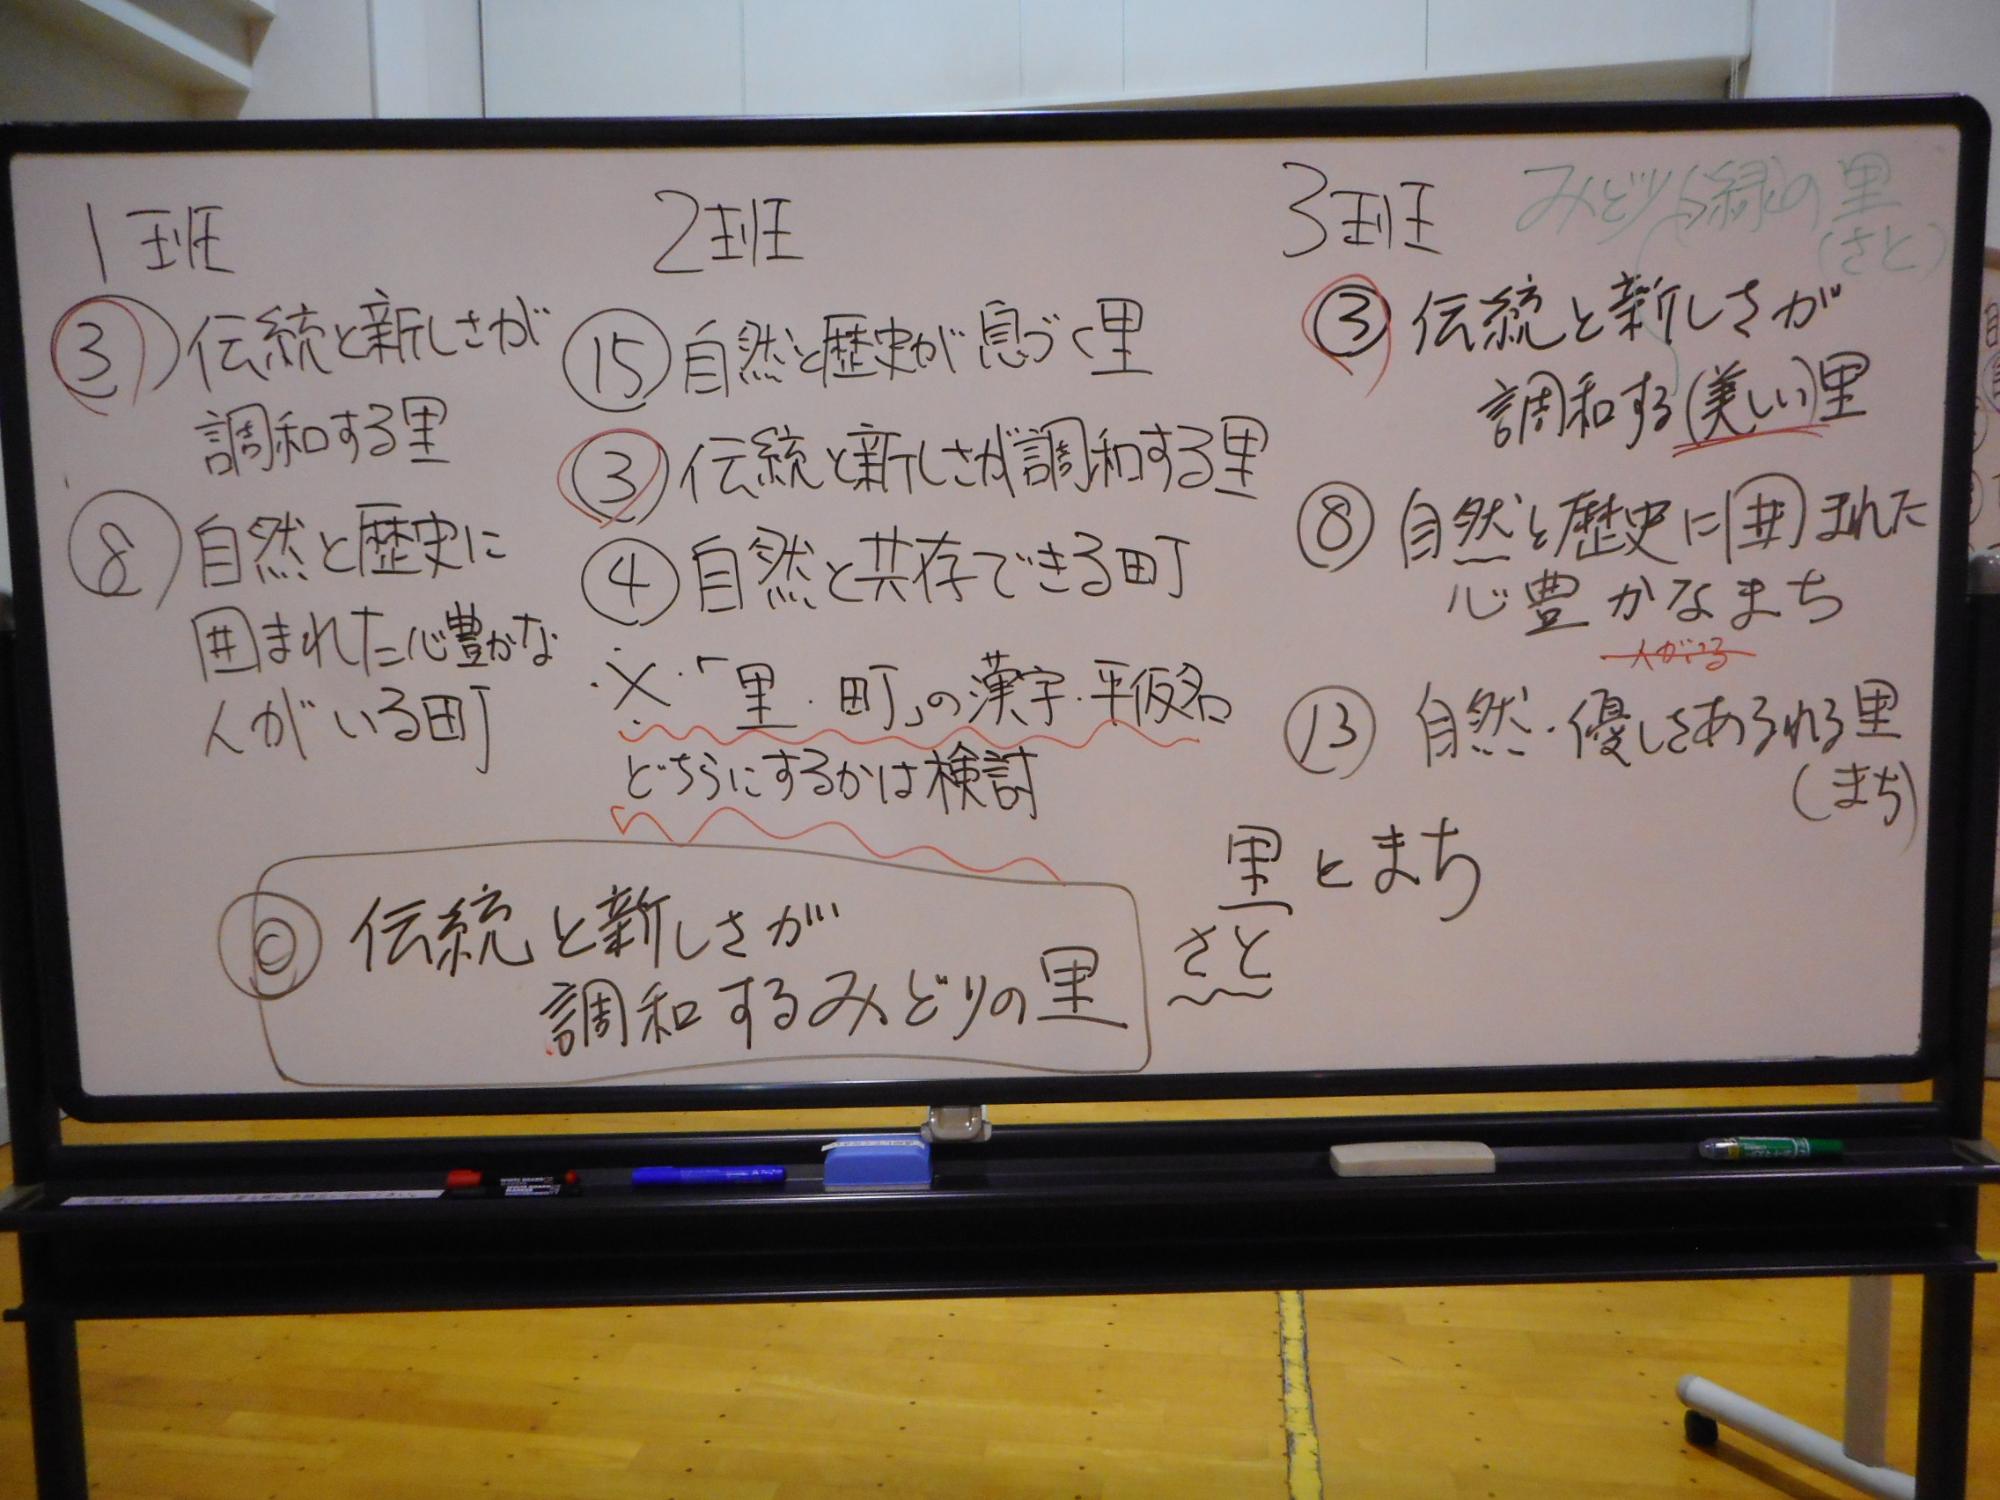 1班
③ 伝統と新しさが
調和する里
⑧ 自然と歴史に
囲まれた心豊かな
人がいる町
2班
⑮ 自然と歴史が息づく里
③ 伝統と新しさが調和する里
④ 自然と共存できる町
※・「里・町」の漢字・平仮名
どちらにするかは検討
3班
みどり(緑)の里
(さと)
③ 伝統と新しさが
調和する(美しい)里
⑧ 自然と歴史に囲まれた
心豊かなまち
人がいる
⑬ 自然・優しさあふれる里
(まち)
里とまち
さと
◎ 伝統と新しさが
調和するみどりの里